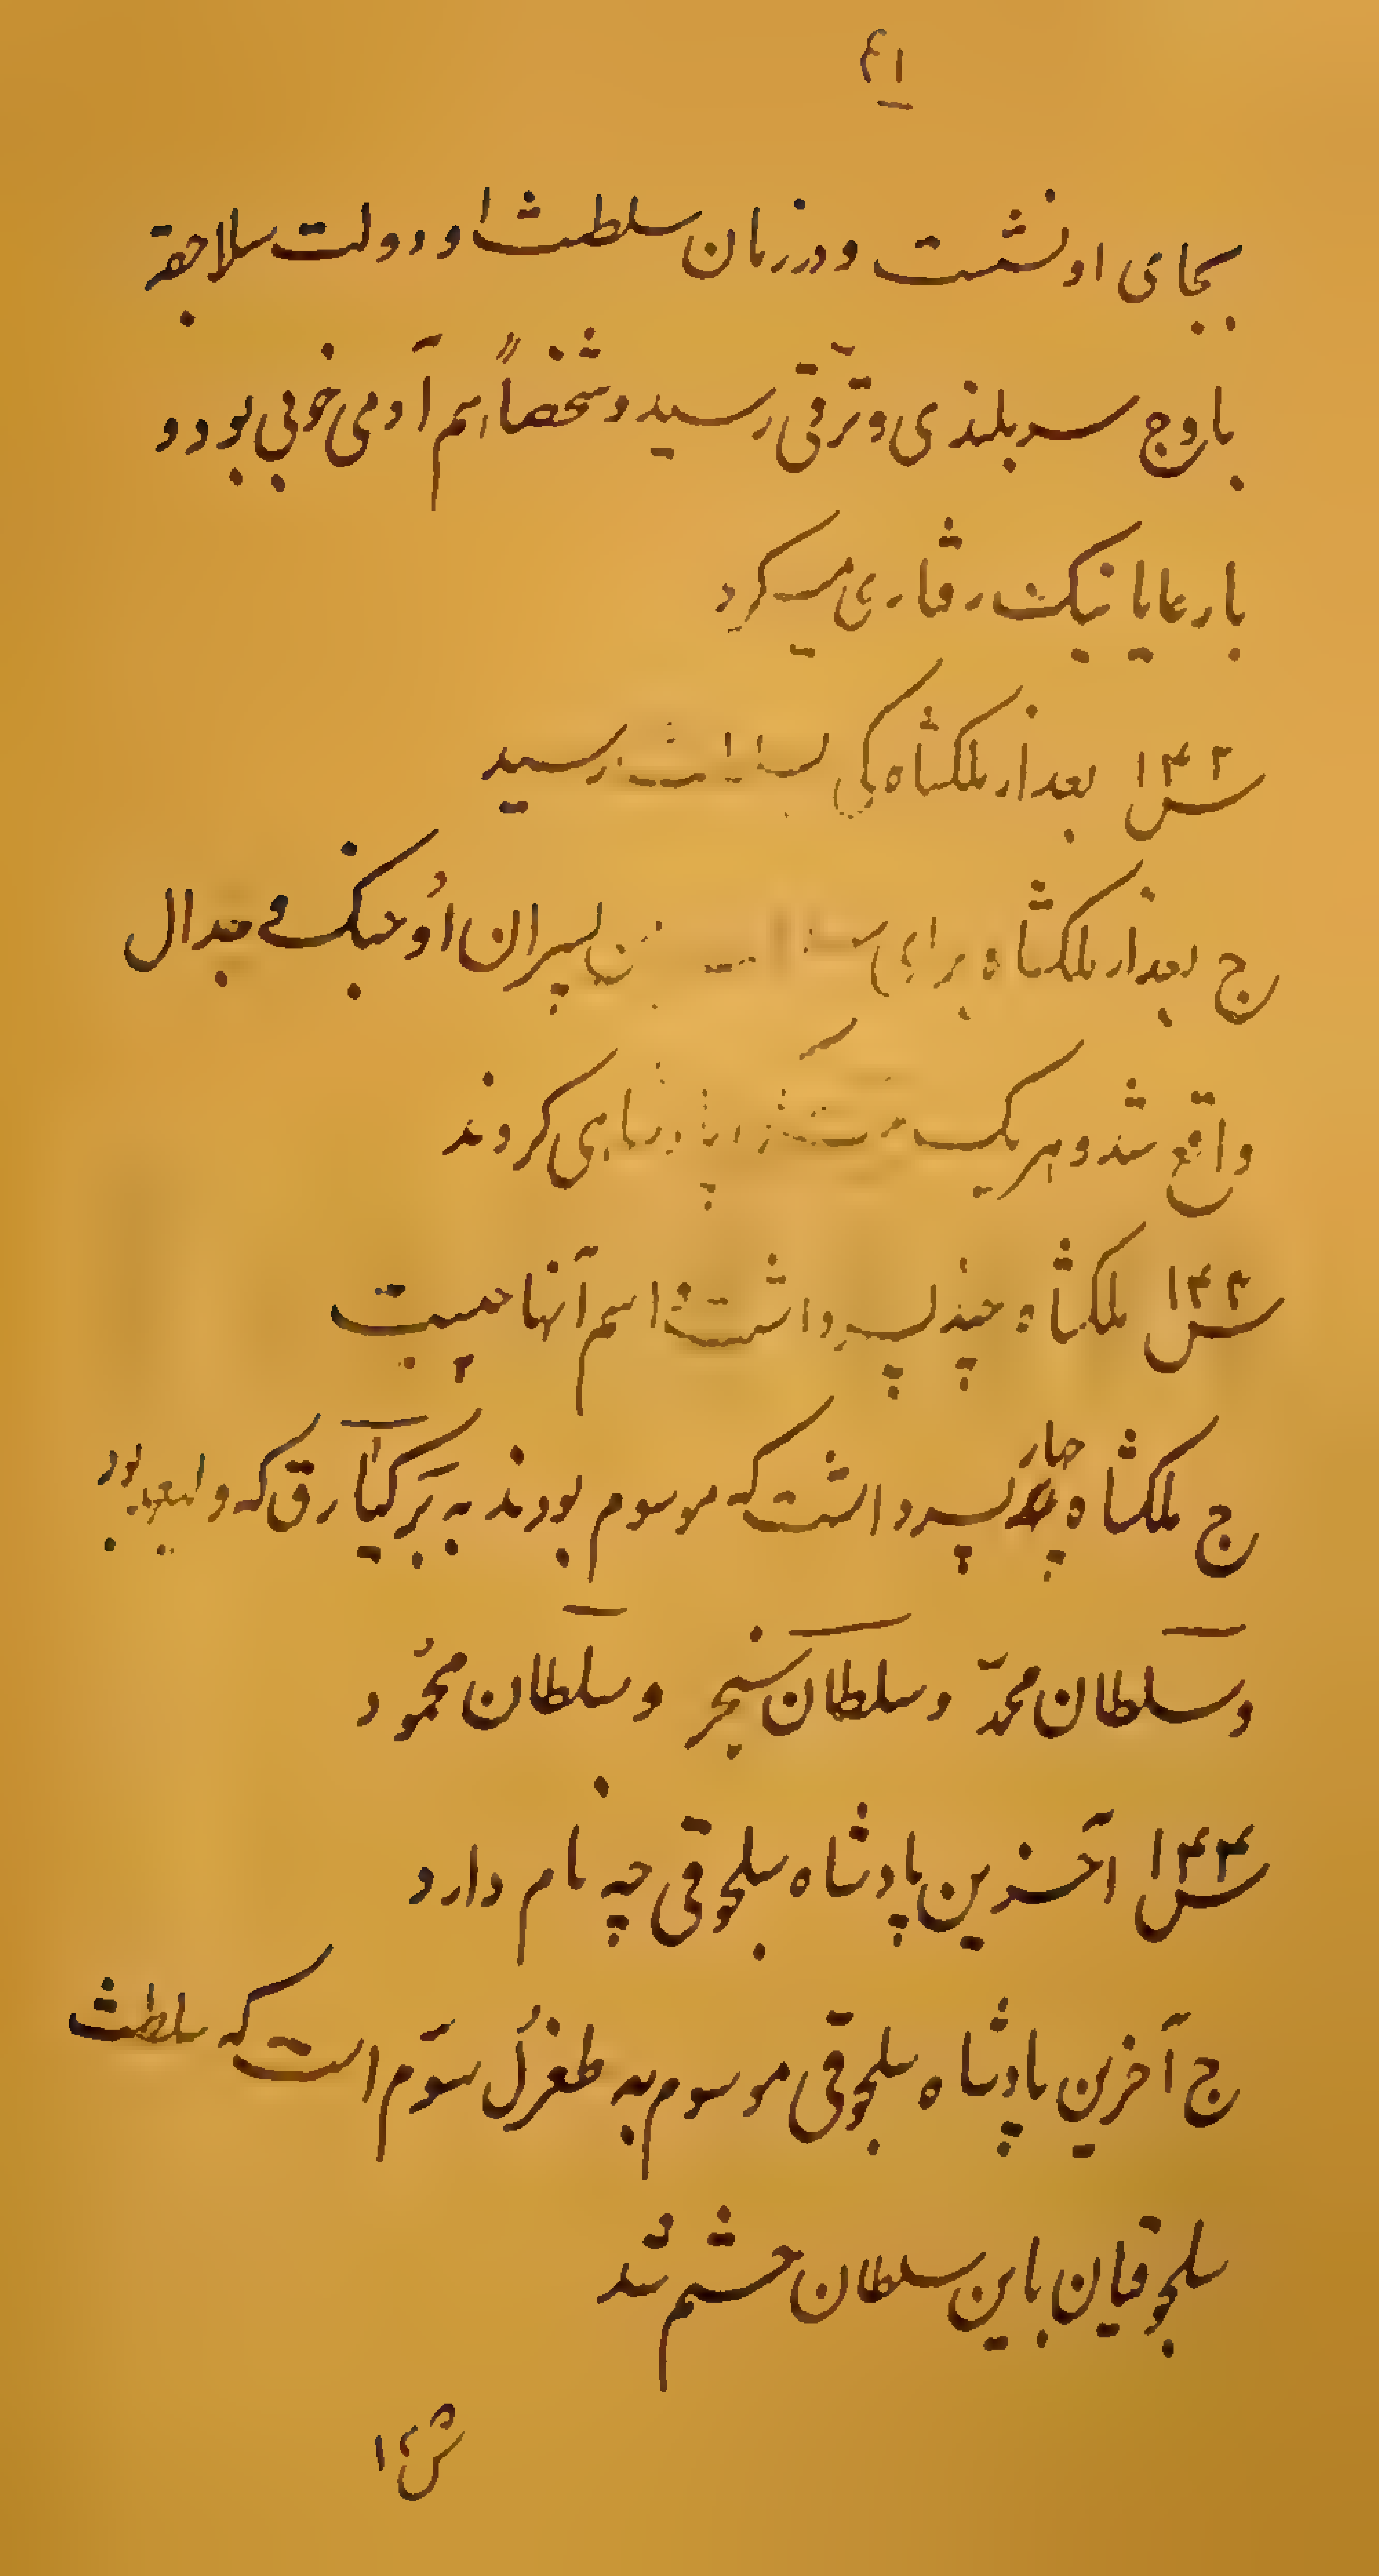 ۴۱
بجای او نشست و در زمان سلطنت او دولت سلاجقه
باوج سربلندی و ترقّی رسید و شخصاً هم آدمی خوبی بود و
با رعایا نیک رفتاری میکرد
س۱۴۲ بعد از ملکشاه کی بسلطنت رسید
ج بعد از ملکشاه برای سلطنت بین پسران اُو جنگ و جدال
واقع شد و هر یک پادشاهی کردند
س۱۴۳ ملکشاه چند پسر داشت و اسم آنها چیست
ج ملکشاه چهار پسر داشت که موسوم بودند به بَرکیارق که ولیعهد بود
و سلطان محمّد و سلطان سنجر و سلطان محمُود
س۱۴۴ آخرین پادشاه سلجوقی چه نام دارد
ج آخرین پادشاه سلجوقی موسوم به طغرُل سوّم است که سلطنت
سلجوقیان باین سلطان ختم شد